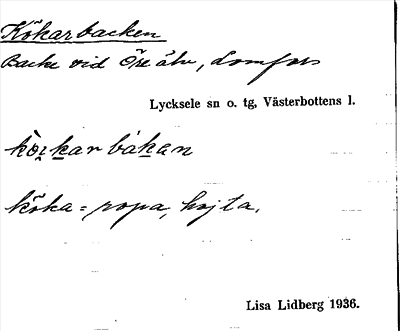 Kökarbacken
Backe vid Öre älv, Lomfors
Lycksele sn o. tg, Västerbottens l.
kö̀ı̯ḵar bàḵan
köka = ropa, hojta.
Lisa Lidberg 1936.